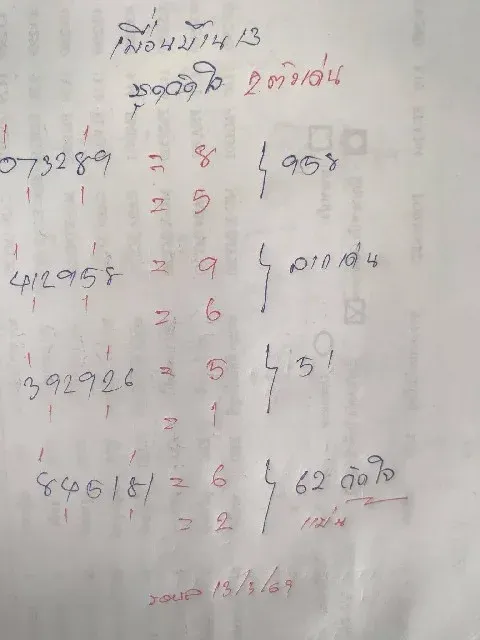 เมื่อนบ้าน 13
ชุดวัดใจ 2 ตัวเด่น
073289 = 8 } 958
= 5
412958 = 9 } ลาภเด่น
= 6
392926 = 5 } 51
= 1
845181 = 6 } 62 วัดใจ
= 2 แม่น
13/3/69